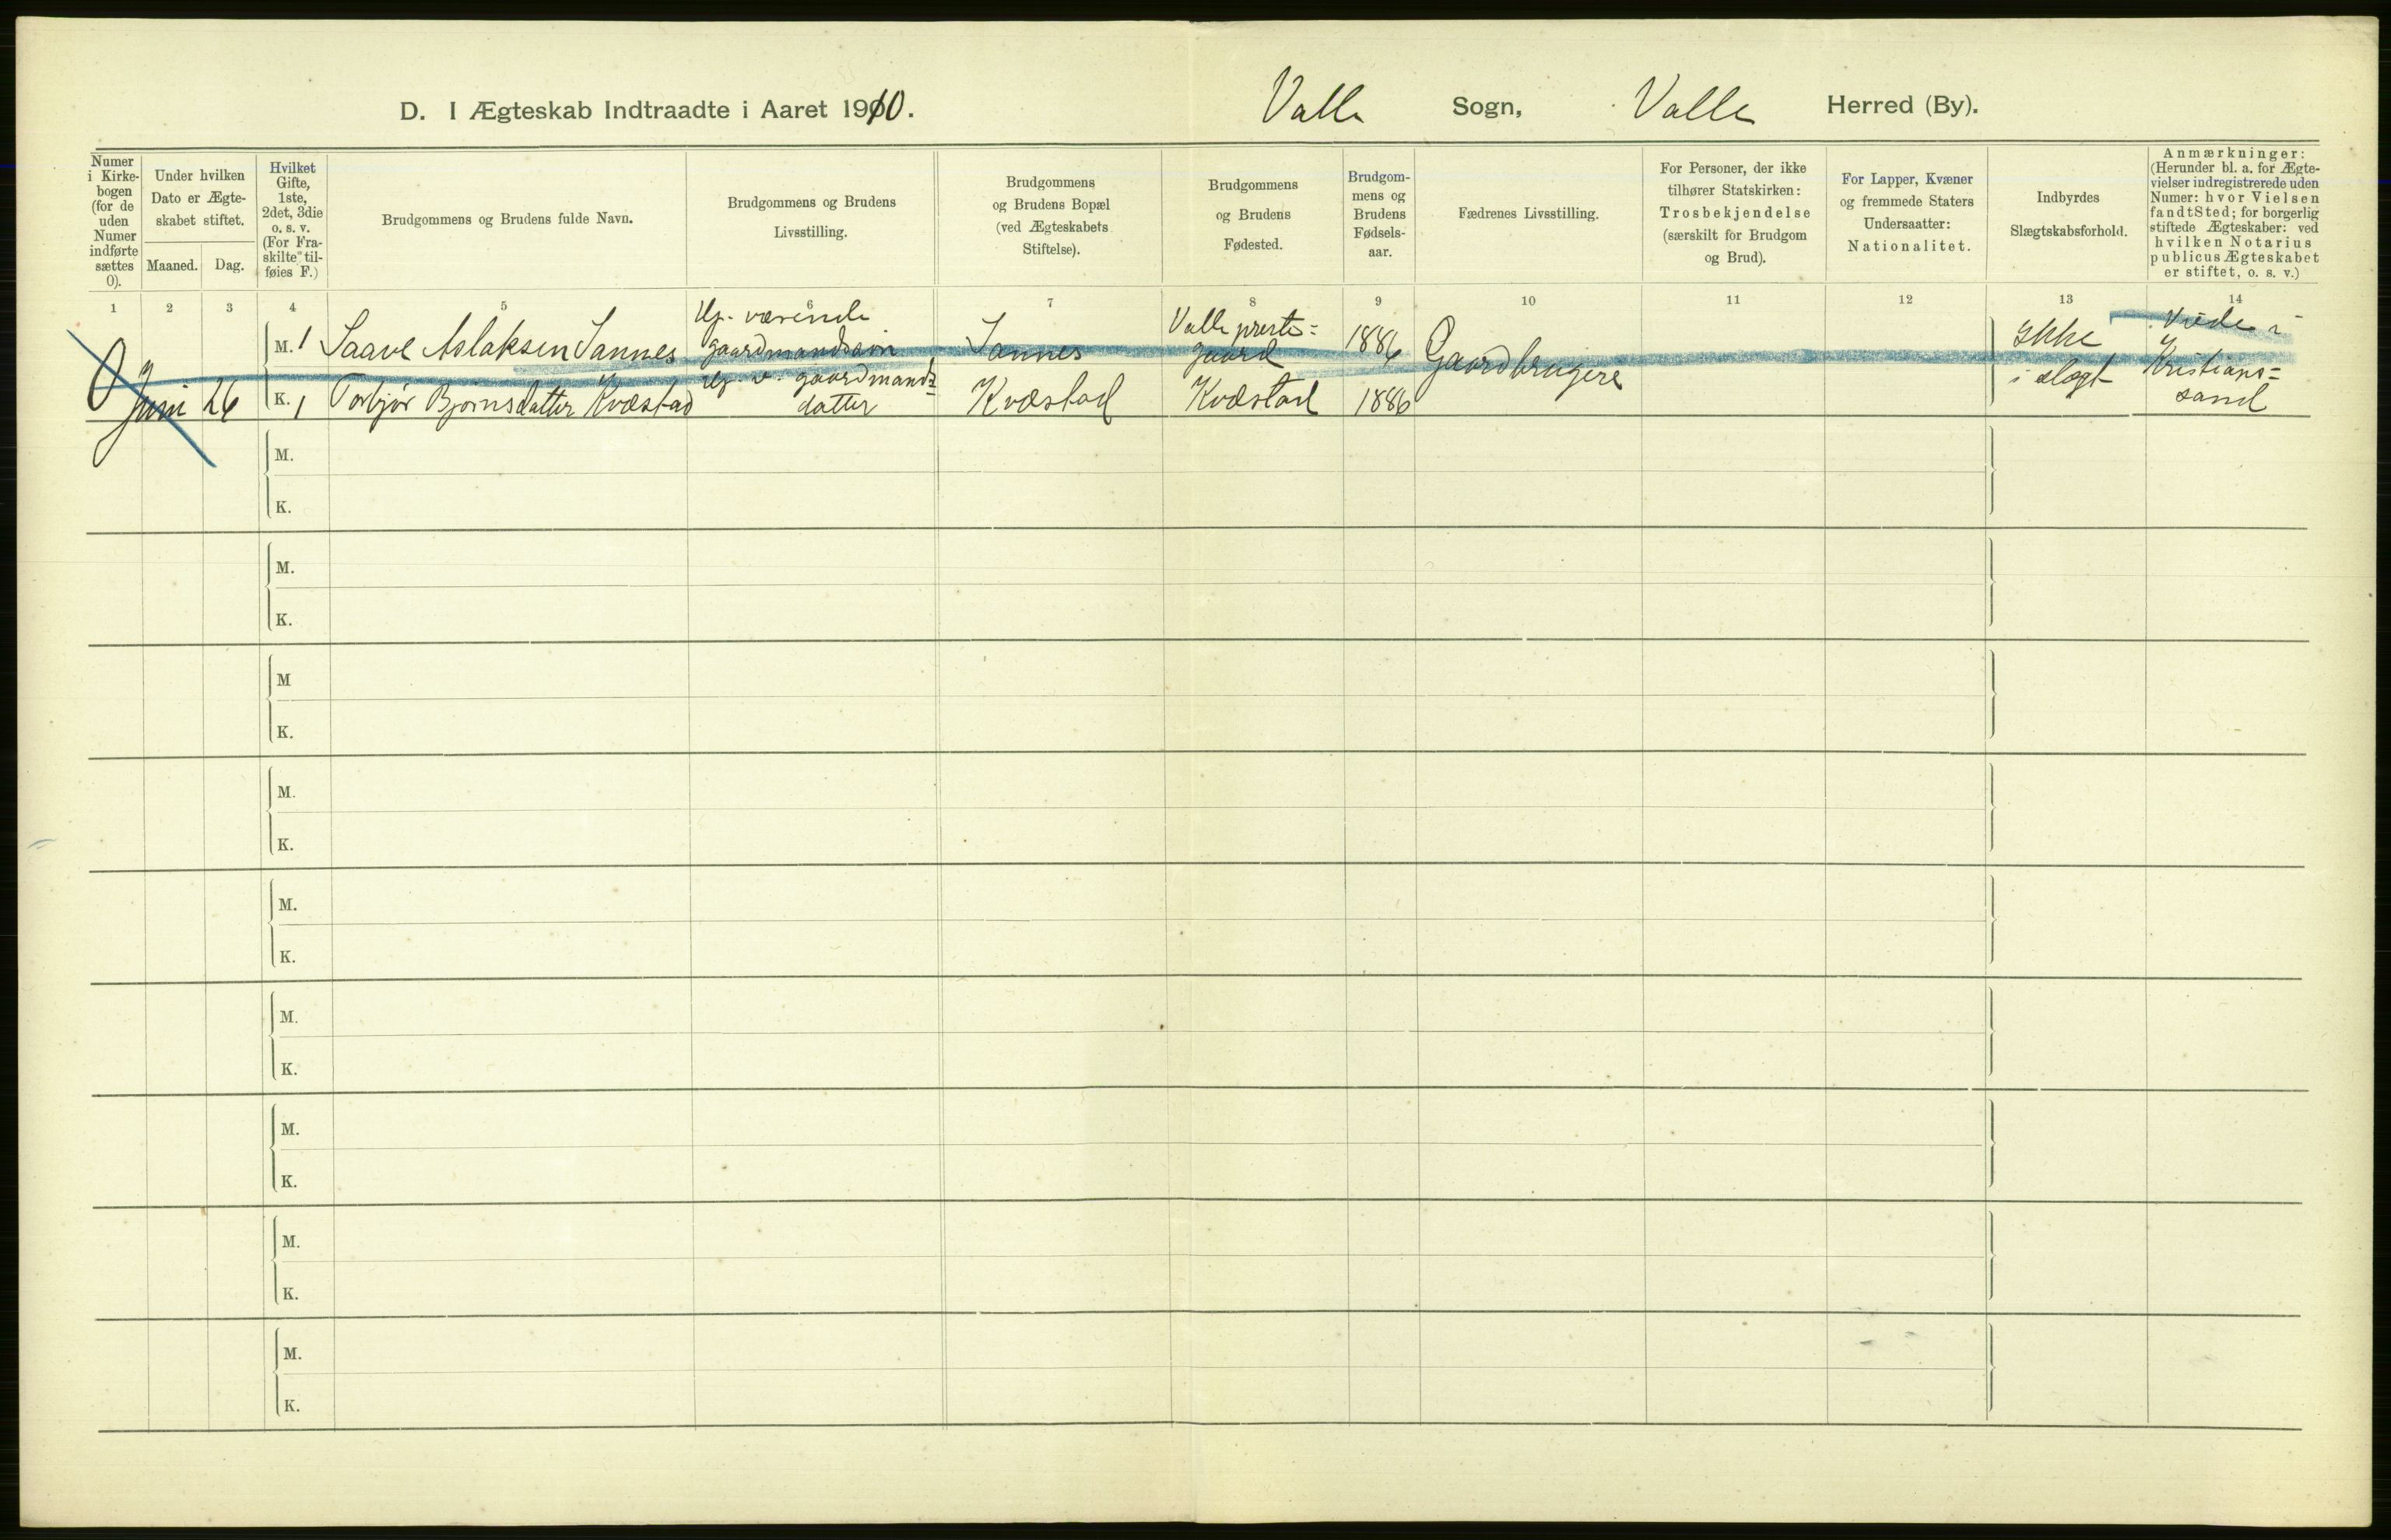 D. I Ægteskab Indtraadte i Aaret 1910.
Valle Sogn, Valle Herred (By).
Numer i Kirke-bogen (for de uden Numer indførte sættes 0).
Under hvilken Dato er Ægte-skabet stiftet.
Maaned. Dag.
Hvilket Gifte, 1ste, 2det, 3die o. s. v. (For Fra-skilte til-føies F.)
Brudgommens og Brudens fulde Navn.
Brudgommens og Brudens Livsstilling.
Brudgommens og Brudens Bopæl (ved Ægteskabets Stiftelse).
Brudgommens og Brudens Fødested.
Brudgom-mens og Brudens Fødsels-aar.
Fædrenes Livsstilling.
For Personer, der ikke tilhører Statskirken: Trosbekjendelse (særskilt for Brudgom og Brud).
For Lapper, Kvæner og fremmede Staters Undersaatter: Nationalitet.
Indbyrdes Slægtskabsforhold.
Anmærkninger: (Herunder bl. a. for Ægte-vielser indregistrerede uden Numer: hvor Vielsen fandt Sted; for borgerlig stiftede Ægteskaber: ved hvilken Notarius publicus Ægteskabet er stiftet, o. s. v.)
1 2 3 4 5 6 7 8 9 10 11 12 13 14
0 Juni 26
M. 1 Saave Aslaksen Sannes
Hj. værende
gaardmandssøn
Sannes
Valle preste=
gaard
1886
Gaardbrugere
Ikke
i slægt
Viede i
Kristians=
sand
K. 1 Torbjør Bjørnsdatter Kvæstad
Hj. v. gaardmands=
datter
Kvæstad
Kvæstad
1886
M.
K.
M.
K.
M
K.
M.
K.
M.
K.
M.
K.
M.
K.
M.
K.
M.
K.